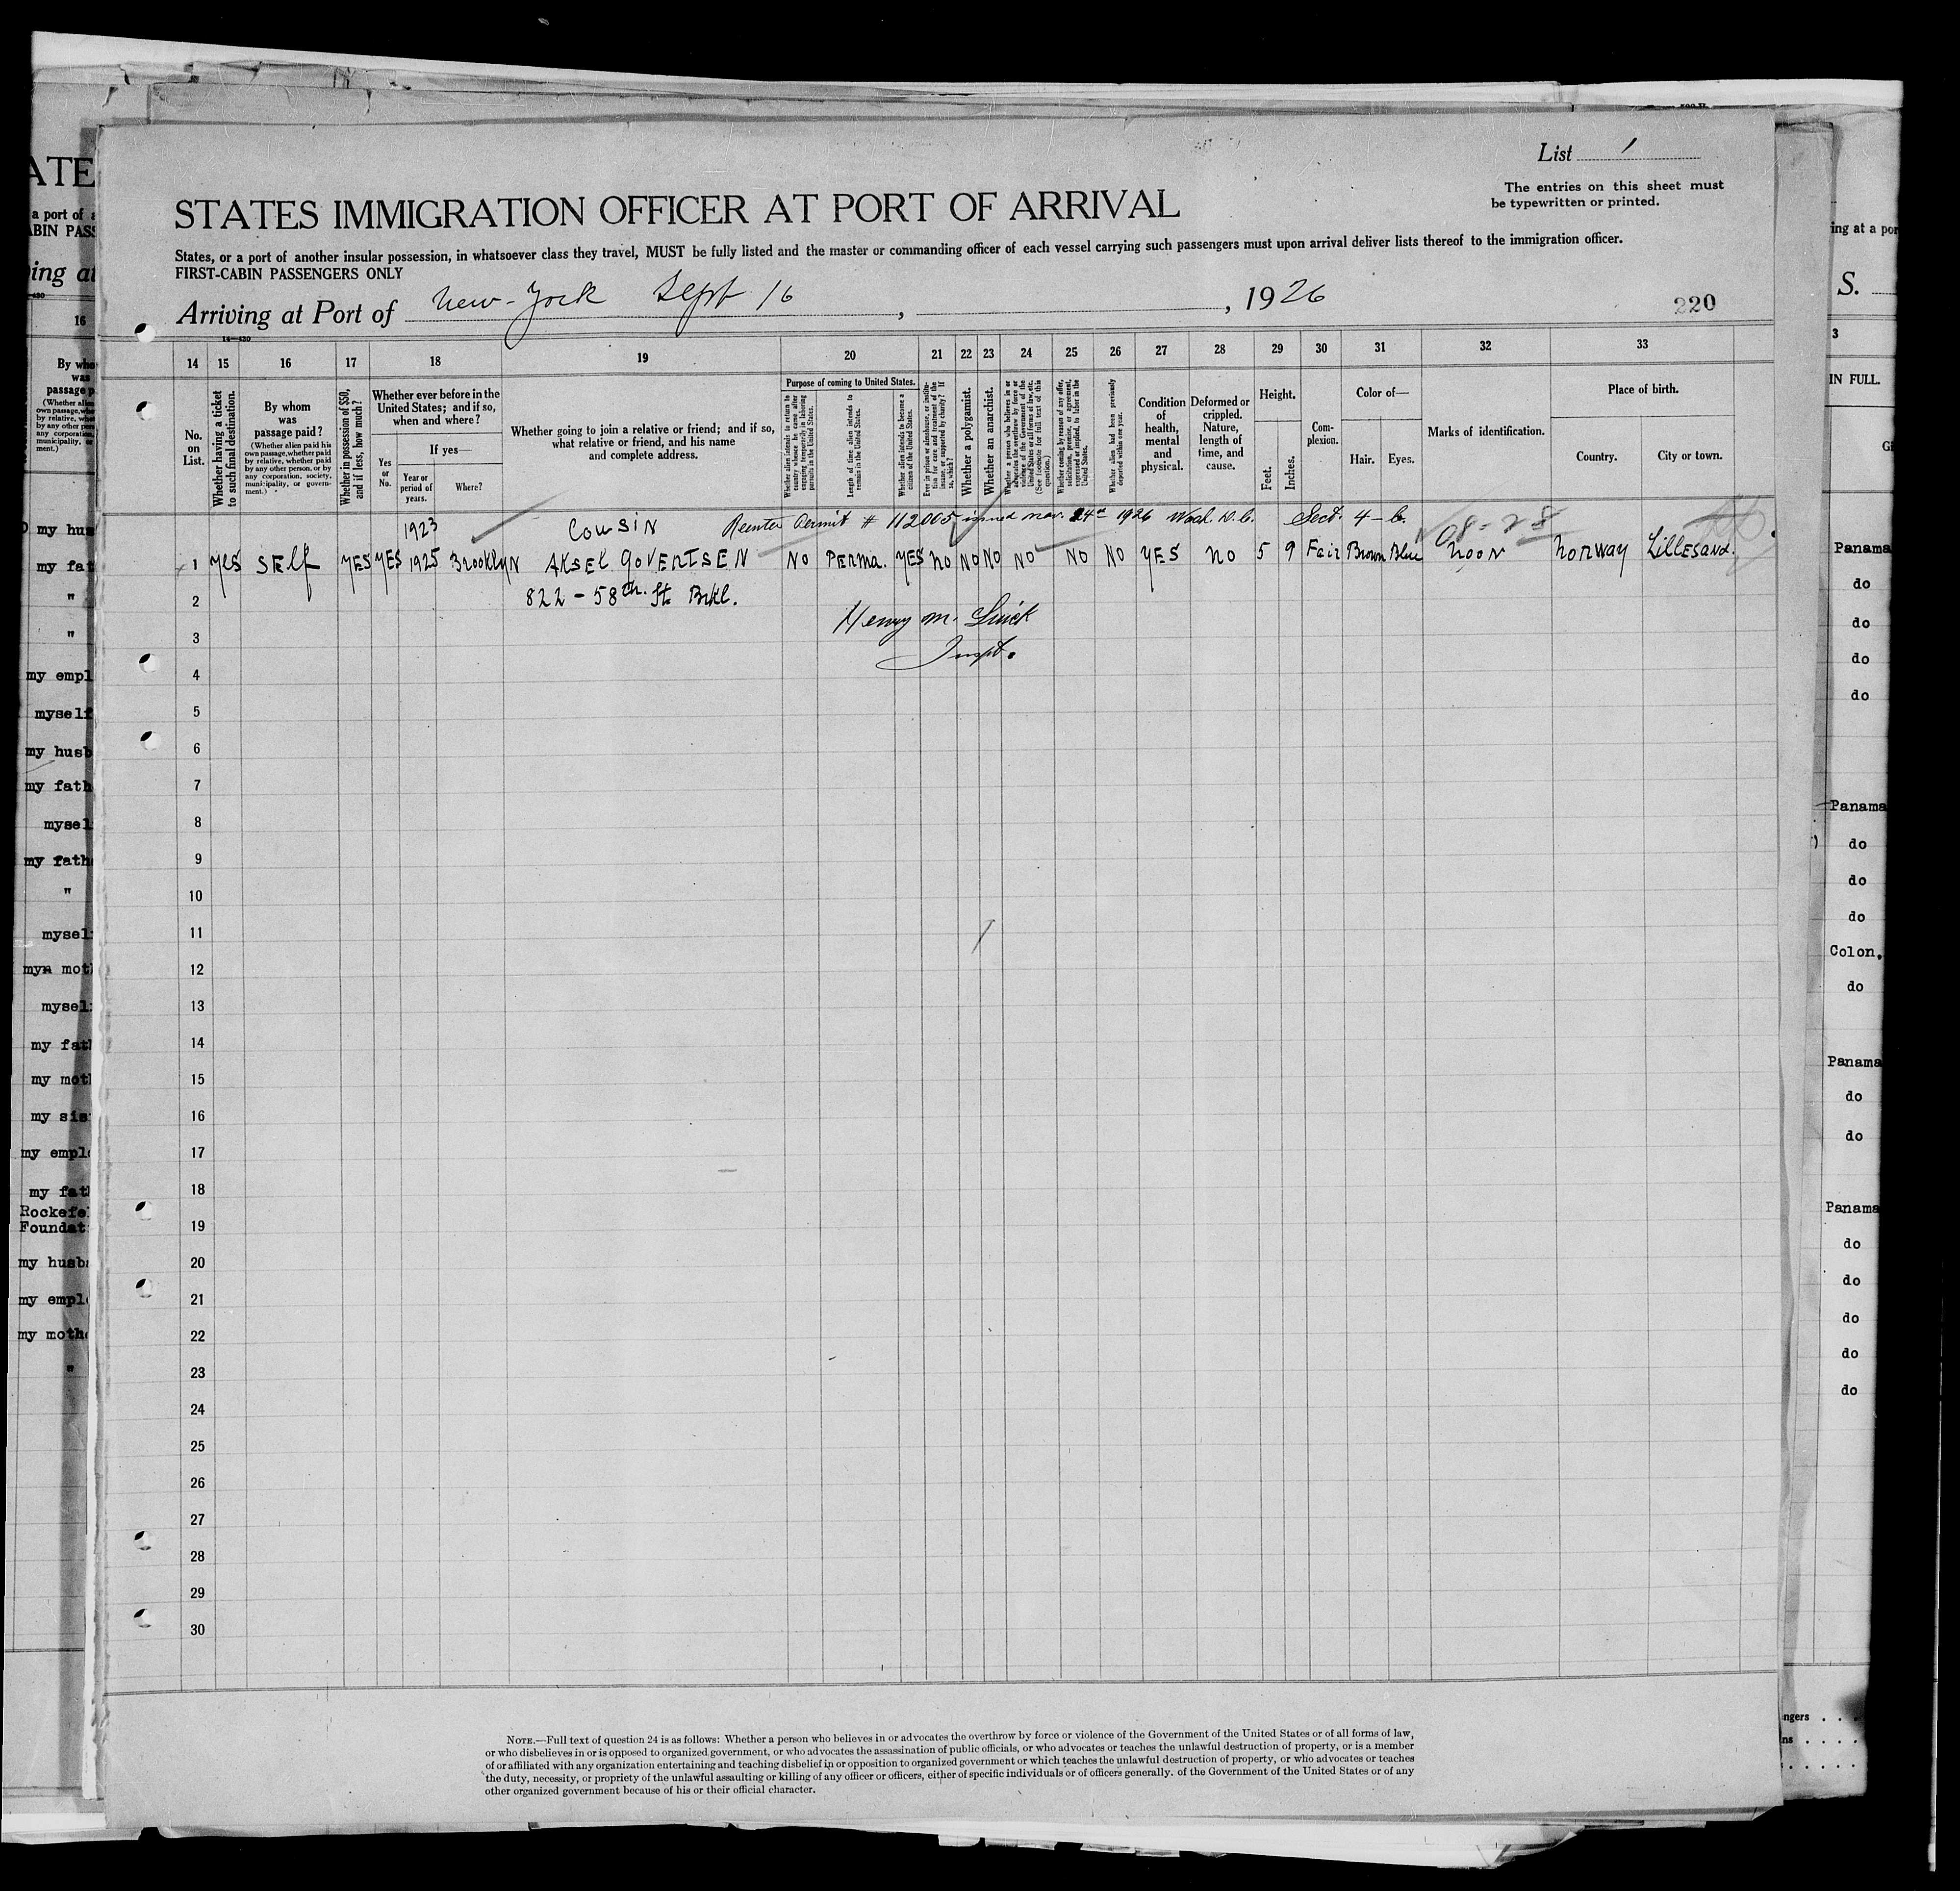 List 1
The entries on this sheet must
be typewritten or printed.
STATES IMMIGRATION OFFICER AT PORT OF ARRIVAL
States, or a port of another insular possession, in whatsoever class they travel, MUST be fully listed and the master or commanding officer of each vessel carrying such passengers must upon arrival deliver lists thereof to the immigration officer.
FIRST-CABIN PASSENGERS ONLY
Arriving at Port of New-York Sept 16, 1926
220
14 15 16 17 18 19 20 21 22 23 24 25 26 27 28 29 30 31 32 33
No. on List.
Whether having a ticket to such final destination.
By whom was passage paid?
(Whether alien paid his own passage, whether paid by relative, whether paid by any other person, or by any corporation, society, municipality, or government.)
Whether in possession of $50, and if less, how much?
Whether ever before in the United States; and if so, when and where?
Yes or No.
If yes—
Year or period of years.
Where?
Whether going to join a relative or friend; and if so, what relative or friend, and his name and complete address.
Purpose of coming to United States.
Whether alien intends to return to country whence he came after engaging temporarily in laboring pursuits in the United States.
Length of time alien intends to remain in the United States.
Whether alien intends to become a citizen of the United States.
Ever in prison or almshouse, or institution for care and treatment of the insane, or supported by charity? If so, which?
Whether a polygamist.
Whether an anarchist.
Whether a person who believes in or advocates the overthrow by force or violence of the Government of the United States or all forms of law, etc. (See footnote for full text of this question.)
Whether coming by reason of any offer, solicitation, promise, or agreement, expressed or implied, to labor in the United States.
Whether alien had been previously deported within one year.
Condition of health, mental and physical.
Deformed or crippled. Nature, length of time, and cause.
Height.
Feet.
Inches.
Complexion.
Color of—
Hair.
Eyes.
Marks of identification.
Place of birth.
Country.
City or town.
1923 Cousin Reenter Permit # 112005 issued Mar. 24th 1926 Wash. D.C. Sect. 4-b.
1 Yes Self Yes Yes 1925 Brooklyn Aksel Govertsen No Perma. Yes No No No No No No Yes No 5 9 Fair Brown Blue Noon Norway Lillesand.
2 822-58th. St. Brkl.
Henry M.
3
Inspt.
4
5
6
7
8
9
10
11
12
13
14
15
16
17
18
19
20
21
22
23
24
25
26
27
28
29
30
NOTE.—Full text of question 24 is as follows: Whether a person who believes in or advocates the overthrow by force or violence of the Government of the United States or of all forms of law,
or who disbelieves in or is opposed to organized government, or who advocates the assassination of public officials, or who advocates or teaches the unlawful destruction of property, or is a member
of or affiliated with any organization entertaining and teaching disbelief in or opposition to organized government or which teaches the unlawful destruction of property, or who advocates or teaches
the duty, necessity, or propriety of the unlawful assaulting or killing of any officer or officers, either of specific individuals or of officers generally. of the Government of the United States or of any
other organized government because of his or their official character.